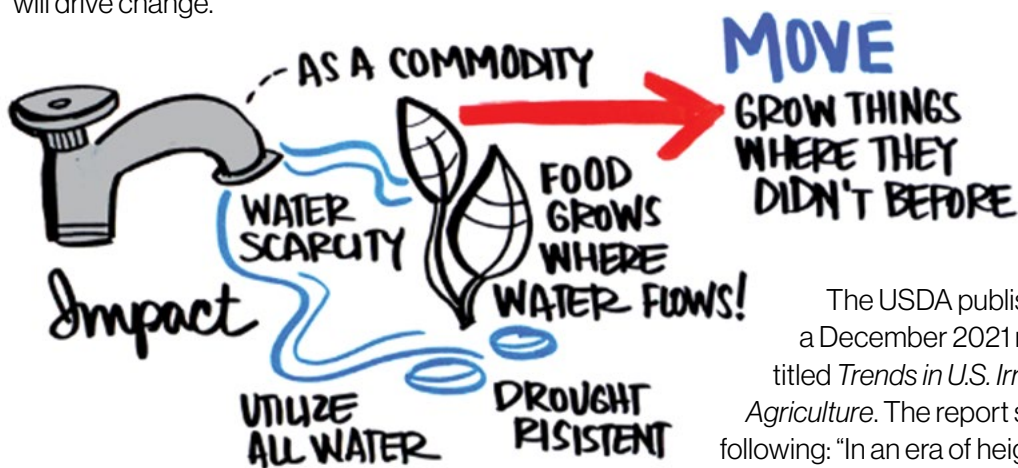 will drive change.
AS A COMMODITY
MOVE
GROW THINGS
WHERE THEY
DIDN'T BEFORE
WATER
SCARCITY
FOOD
GROWS
WHERE
WATER FLOWS!
Impact
UTILIZE
ALL WATER
DROUGHT
RISISTENT
The USDA publis
a December 2021
titled Trends in U.S. Irr
Agriculture. The report s
following: “In an era of heig